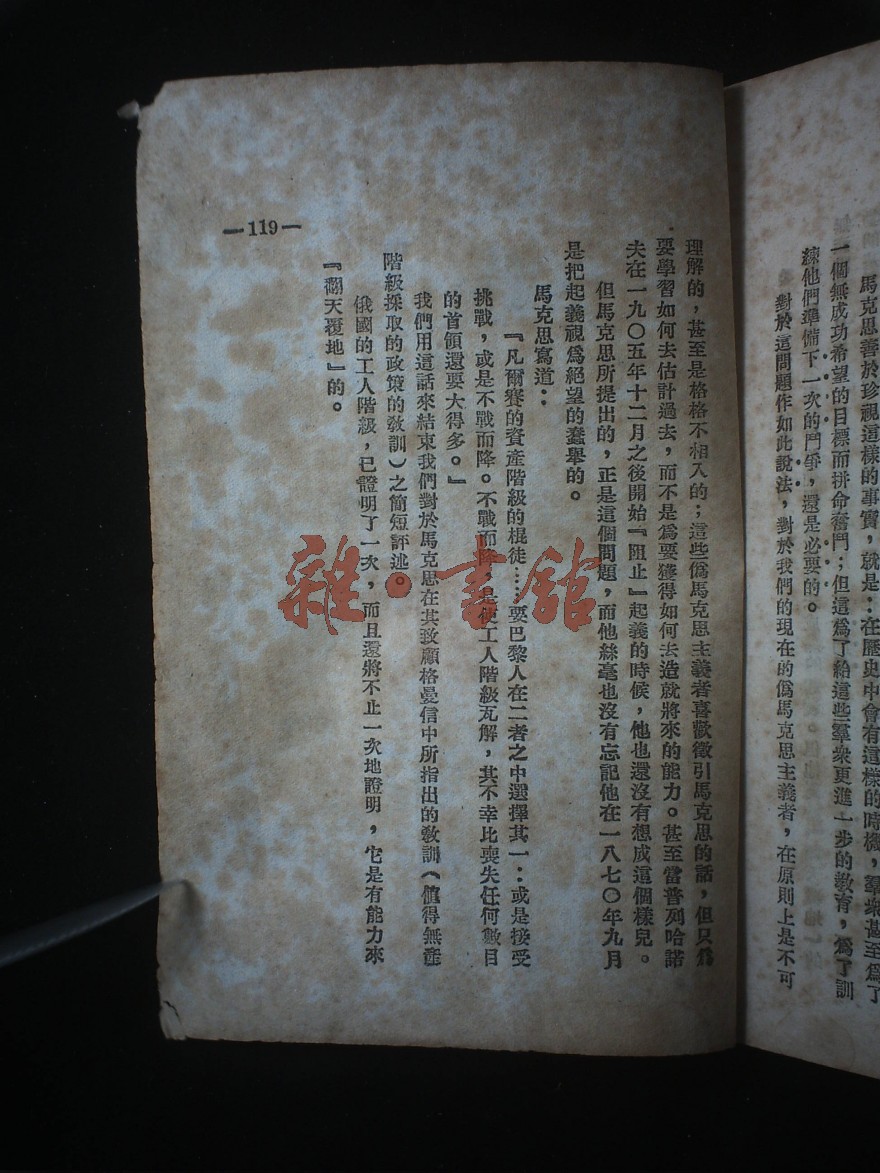 馬克思善於珍視這樣的事實,就是:在歷史中會有這樣的時機,羣衆甚至爲了
一個無成功希望的目標而拼命奮鬥;但這爲了給這些羣衆更進一步的教育,爲了訓
練他們準備下一次的鬥爭,還是必要的。
對於這問題作如此說法,對於我們的現在的僞馬克思主義者,在原則上是不可
理解的,甚至是格格不相入的;這些僞馬克思主義者喜歡徵引馬克思的話,但只爲
要學習如何去估計過去,而不是爲要獲得如何去造就將來的能力。甚至當普列哈諾
夫在一九〇五年十二月之後開始『阻止』起義的時候,他也還沒有想成這個樣兒。
但馬克思所提出的,正是這個問題,而他絲毫也沒有忘記他在一八七〇年九月
是把起義視爲絕望的蠢舉的。
馬克思寫道:
『凡爾賽的資產階級的棍徒……要巴黎人在二者之中選擇其一:或是接受
挑戰,或是不戰而降。不戰而降,是使工人階級瓦解,其不幸比喪失任何數目
的首領還要大得多。』
我們用這話來結束我們對於馬克思在其致顧格曼信中所指出的教訓(值得無產
階級採取的政策的教訓)之簡短評述。
俄國的工人階級,已證明了一次,而且還將不止一次地證明,它是有能力來
『翻天覆地』的。
—119—
雜·書舘